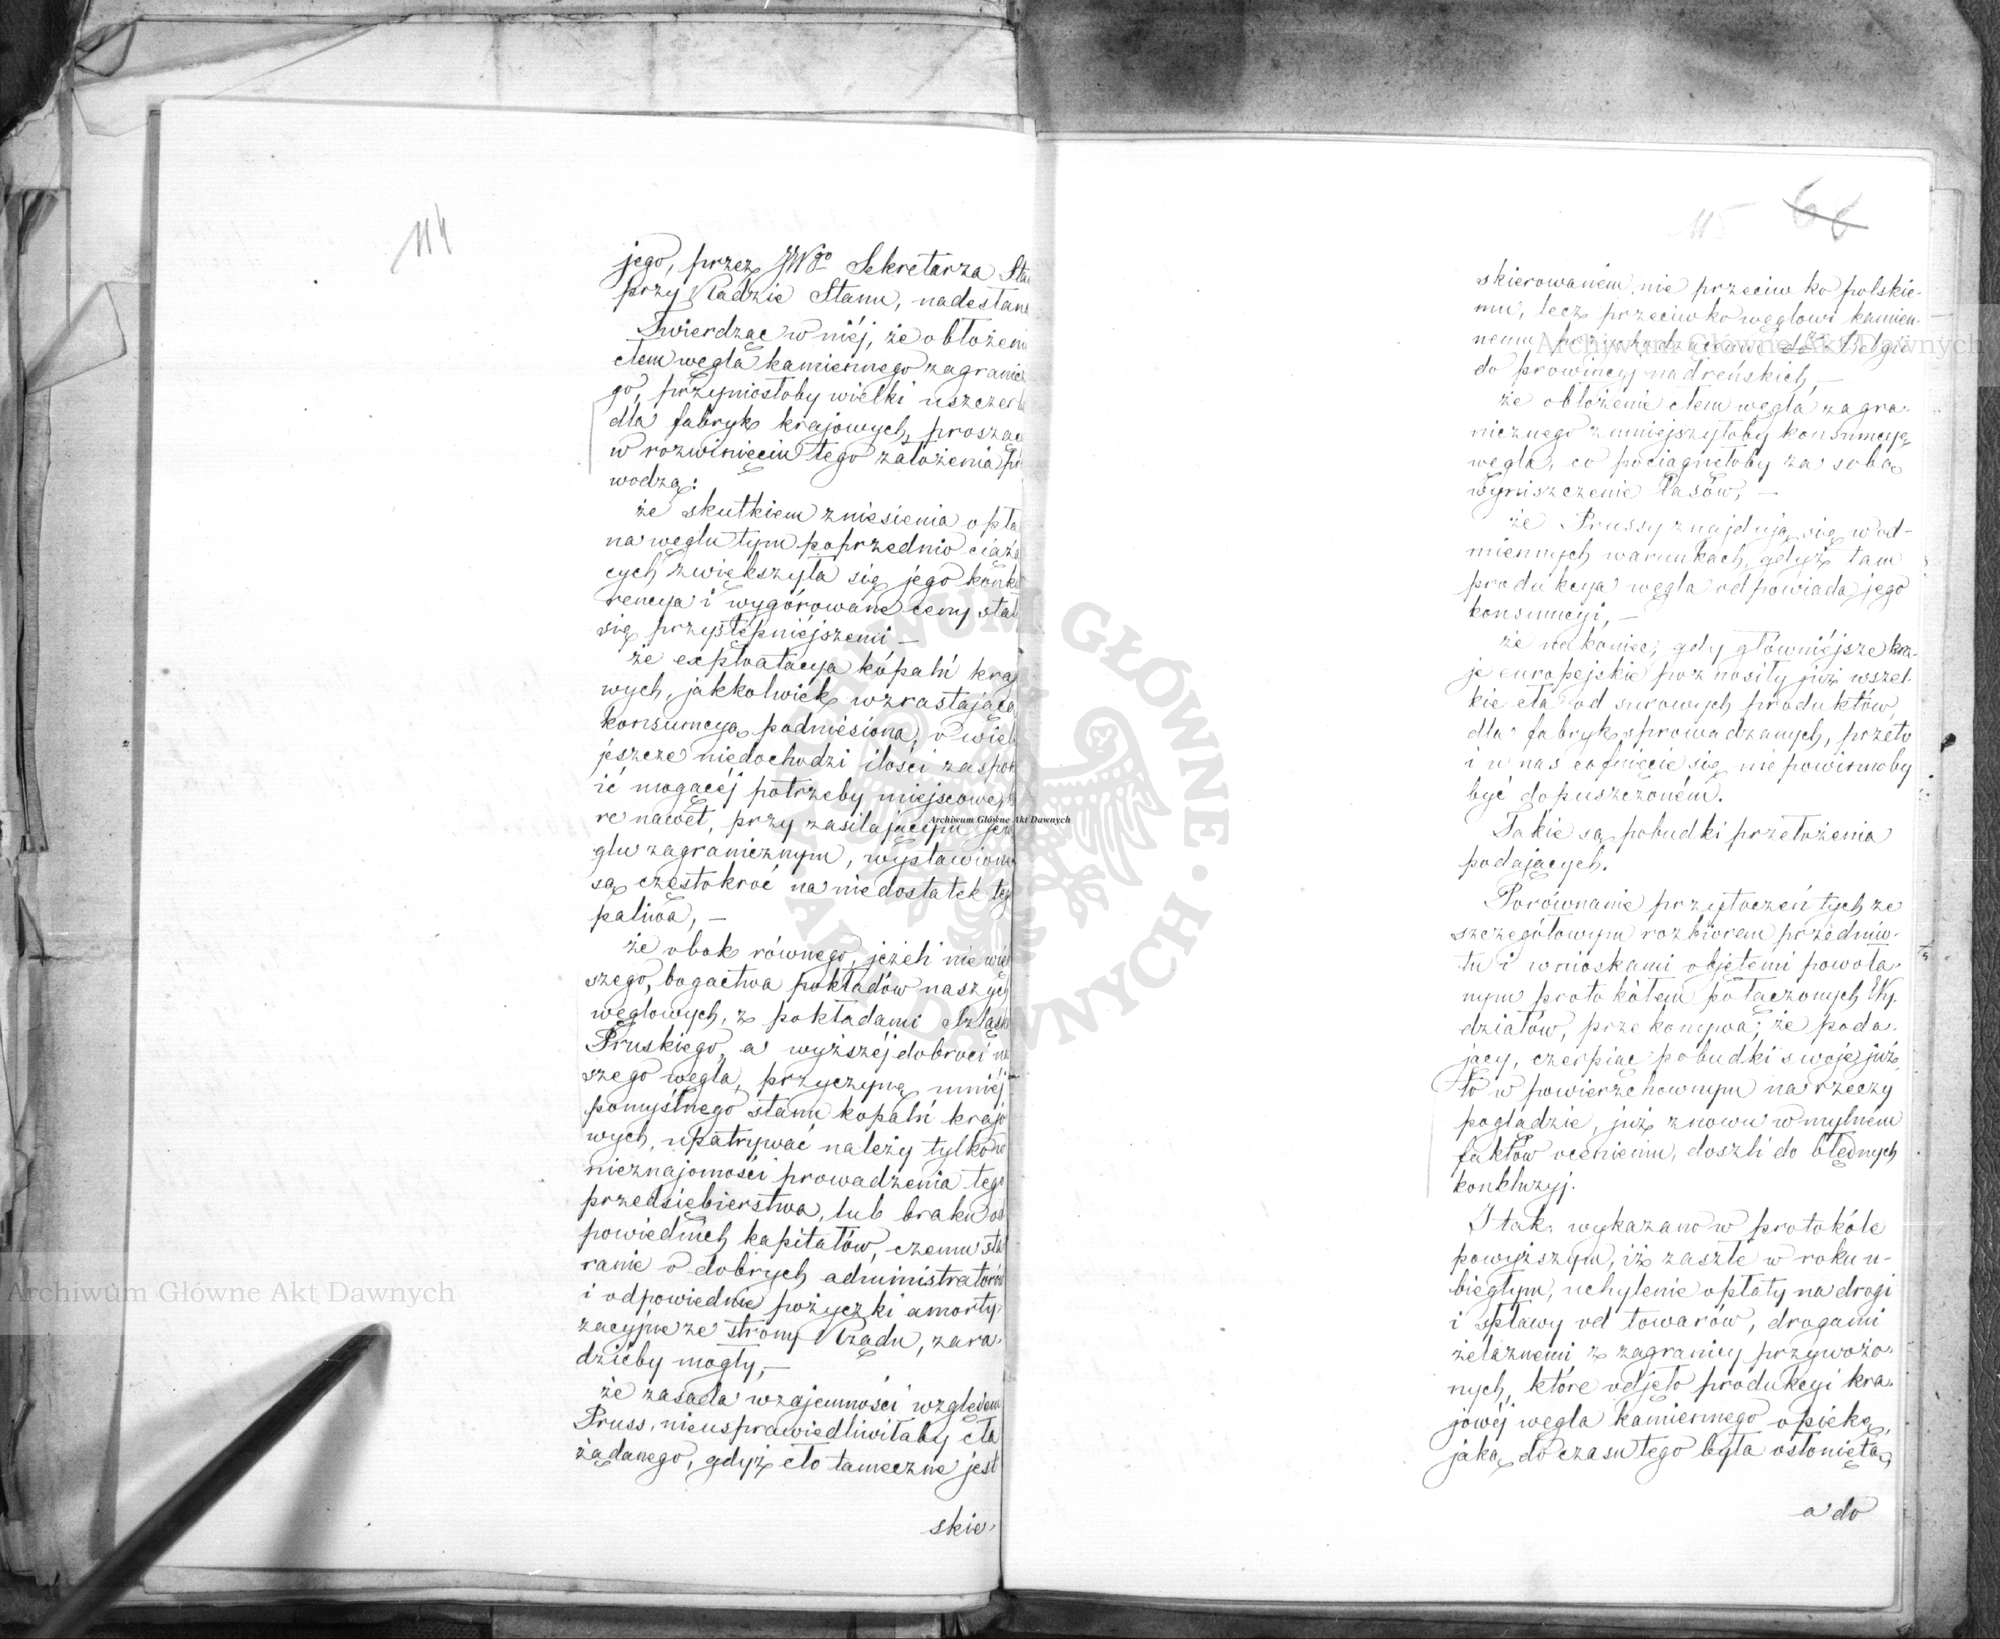 114
jego, przez JWgo Sekretarza Sta
przy Radzie Stanu, nadesłan
Twierdząc w niéj, że obłożeni
cłem węgla kamiennego zagranicz
go, przyniosłoby wielki uszczerb
dla fabryk krajowych, prosząc
w rozwinięciu tego założenia
wodzą:
że skutkiem zniesienia opła
na węglu tym poprzednio ciążą
cych zwiększyła się jego konku
rencya i wygórowane ceny stał
się przystępniéjszemi —
że exploatacya kopalń kraj
wych, jakkolwiek wzrastającą
konsumcyą podniesiona, o wiel
jeszcze niedochodzi ilości zaspok
ić mogącéj potrzeby miejscowe,
re nawet, przy zasilającym je
glu zagranicznym, wystawione
są częstokroć na niedostatek teg
paliwa, —
że obok równego, jeżeli nie wię
szego, bogactwa pokładów naszyc
węglowych, z pokładami Szląsk
Pruskiego, a wyższéj dobroci na
szego węgla, przyczynę mniéj
pomyślnego stanu kopalń krajo
wych, upatrywać należy tylko w
nieznajomości prowadzenia tego
przedsiębierstwa, lub braku od
powiednich kapitałów, czemu sta
ranie o dobrych administratorów
i odpowiednie pożyczki amorty-
zacyjne ze strony Rządu, zara-
dzićby mogły, —
że zasada wzajemności względem
Pruss, nieusprawiedliwiłaby cła
żądanego, gdyż cło tameczne jest
skie-
115 66
skierowaném nie przeciwko polskie-
mu, lecz przeciwko węglowi kamien-
nemu, przychodzącemu z Belgii
do prowincyj nadreńskich, —
że obłożenie cłem węgla zagra-
nicznego zmniejszyłoby konsumcyę
węgla, co pociągnęłoby za sobą
wyniszczenie lasów, —
że Prussy znajdują się w od-
miennych warunkach, gdyż tam
produkcya węgla odpowiada jego
konsumcyi, —
że nakoniec, gdy główniejsze kra-
je europejskie poznosiły już wszel-
kie cła od surowych produktów
dla fabryk sprowadzanych, przeto
i u nas cofnięcie się nie powinnoby
być dopuszczoném.
Takie są pobudki przełożenia
podających.
Porównanie przytoczeń tych ze
szczegółowym rozbiorem przedmio-
tu i wnioskami objętemi powoła-
nym protokółem połączonych Wy-
działów, przekonywa, że poda-
jący, czerpiąc pobudki swoje już
to w powierzchownym na rzeczy
poglądzie, już znowu w mylném
faktów ocenieniu, doszli do błędnych
konkluzyj.
I tak: wykazano w protokóle
powyższym, iż zaszłe w roku u-
biegłym, uchylenie opłaty na drogi
i spławy od towarów, drogami
żelaznemi z zagranicy przywożo-
nych, które odjęło produkcyi kra-
jowéj węgla kamiennego opiekę,
jaką do czasu tego była osłonięta,
a do
Archiwum Główne Akt Dawnych
Archiwum Główne Akt Dawnych
Archiwum Główne Akt Dawnych
ARCHIWUM GŁÓWNE AKT DAWNYCH